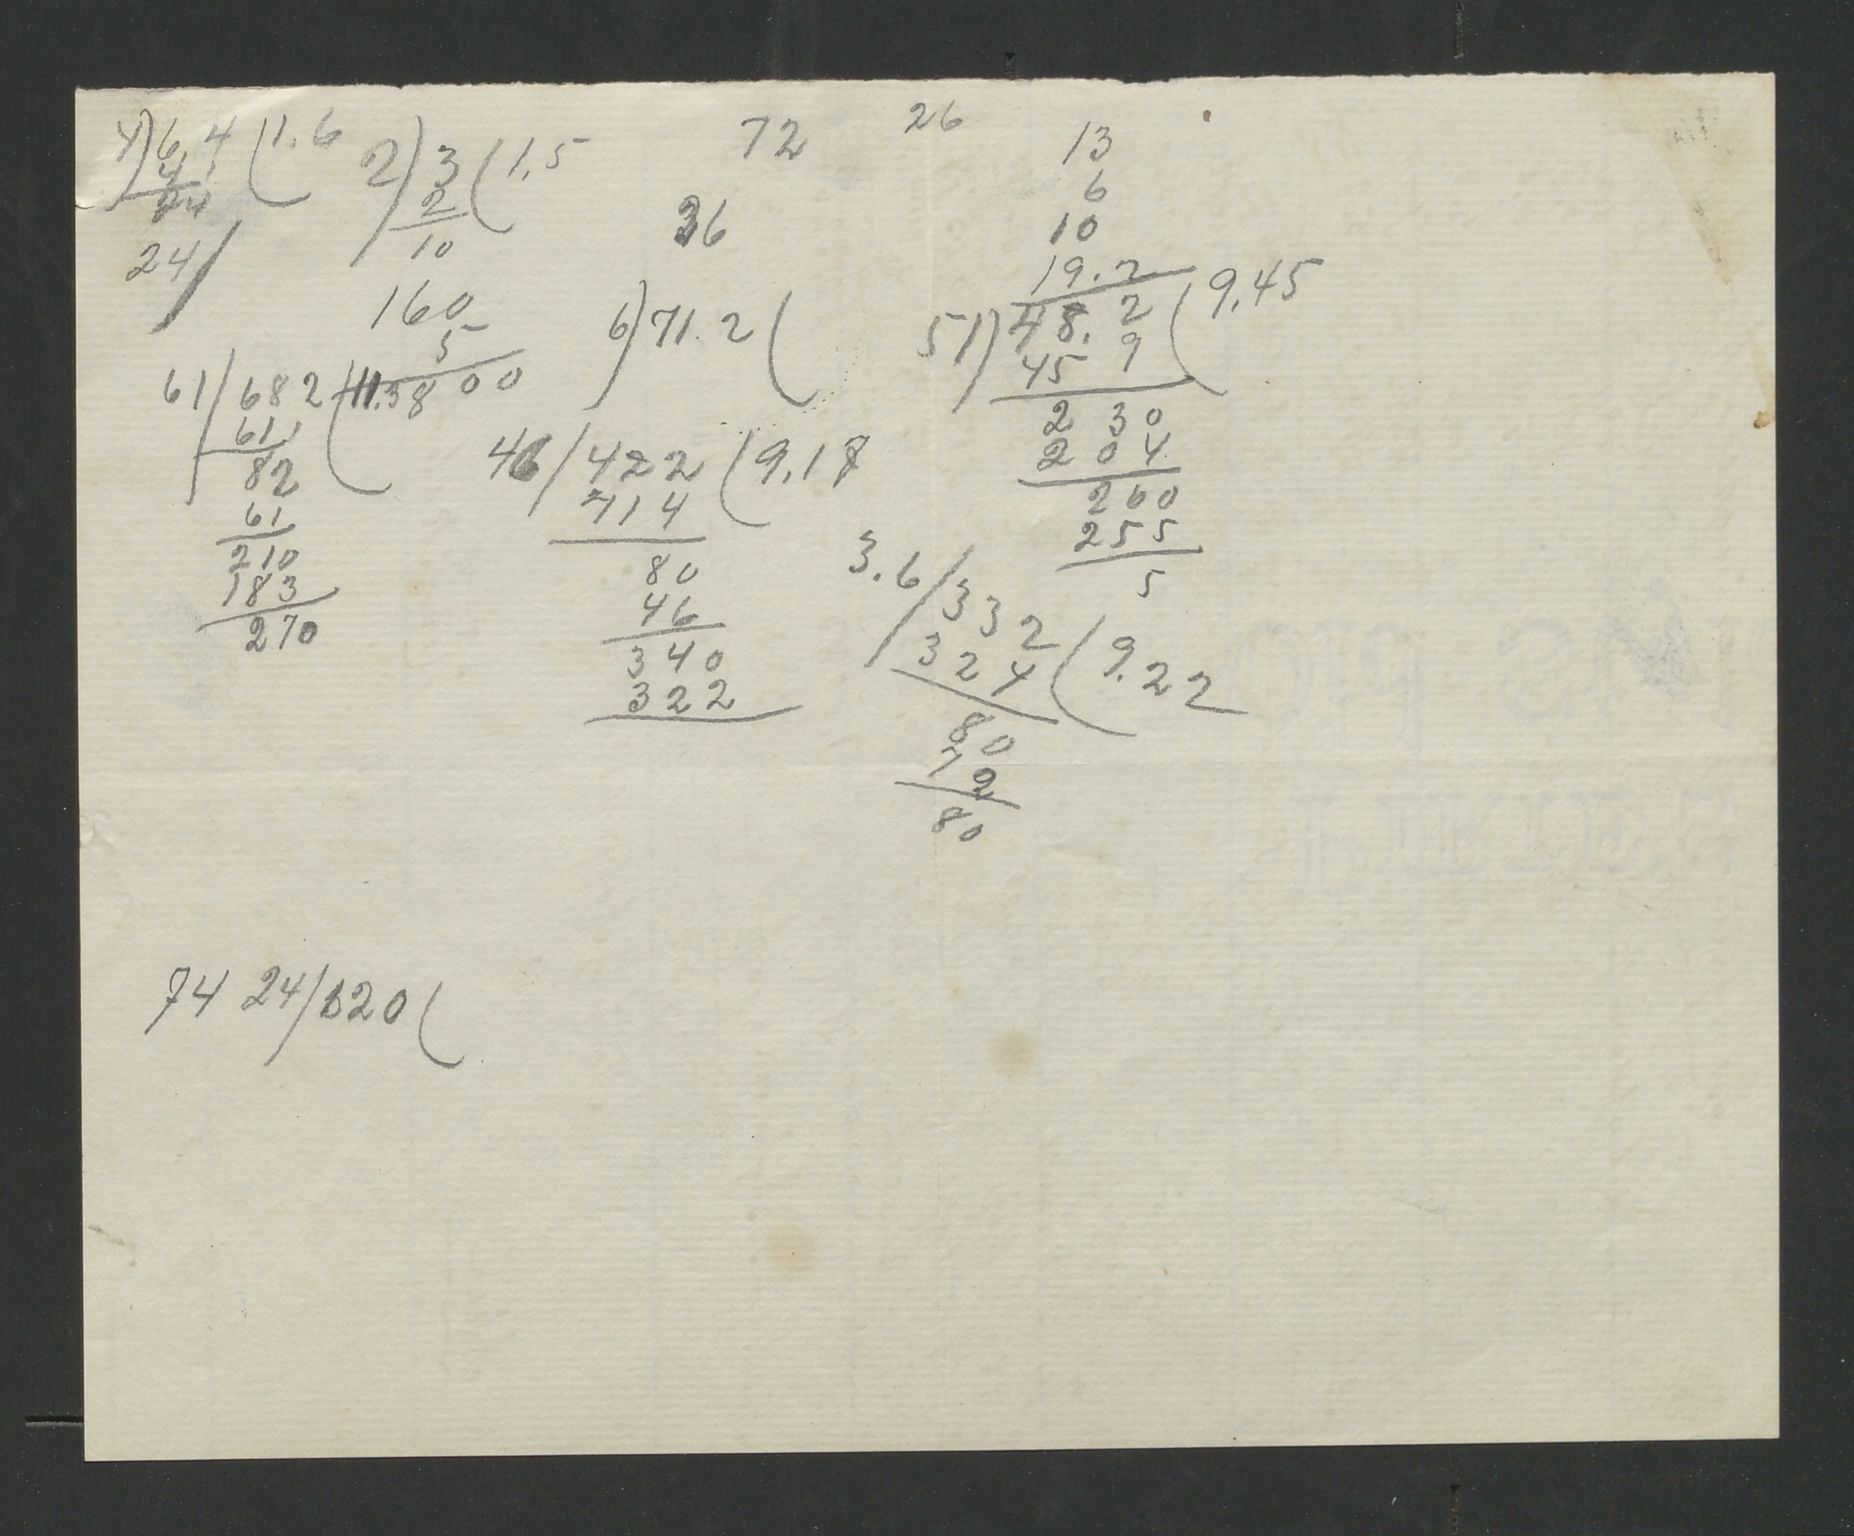 4)6.4(1.6
4
24
24/
2)3(1.5
2
10
72
26
36
13
6
10
19.2
51)48.2(9.45
45 9
2 30
2 0 4
260
255
5
160
5
8 0 0
6)71.2(
61/682(11.3
61
82
61
210
183
270
46/422(9.17
414
80
46
340
322
3.6/332(9.22
324
80
72
80
74 24/620(